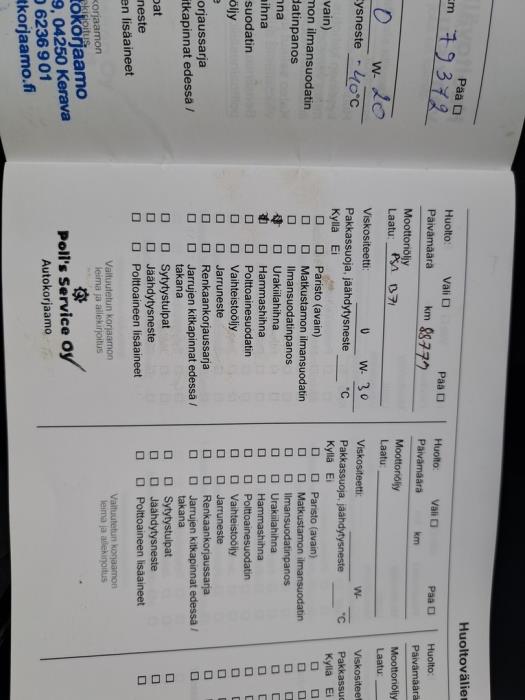 Huoltovälien
cm 79372 Pää ☐
0 W- 20
ysneste -40 °C
vain)
mon ilmansuodatin
datinpanos
hna
ihna
suodatin
öljy
e
orjaussarja
itkapinnat edessä /
pat
neste
en lisäaineet
korjaamon
9, 04250 Kerava
6236901
tkorjaamo.fi
Huolto: Väli ☐ Pää ☐
Päivämäärä km 88779
Moottoriöljy
Laatu: PSA B71
Viskositeetti: 0 W- 30
Pakkassuoja, jäähdytysneste °C
Kyllä Ei
☐ ☐ Paristo (avain)
☐ ☐ Matkustamon ilmansuodatin
☐ ☐ Ilmansuodatinpanos
☐ ☐ Urakiilahihna
☐ ☐ Hammashihna
☐ ☐ Polttoainesuodatin
☐ ☐ Vaihteistoöljy
☐ ☐ Jarruneste
☐ ☐ Renkaankorjaussarja
☐ ☐ Jarrujen kitkapinnat edessä /
takana
☐ ☐ Sytytystulpat
☐ ☐ Jäähdytysneste
☐ ☐ Polttoaineen lisäaineet
Valtuutetun korjaamon
leima ja allekirjoitus
Poll's Service Oy
Autokorjaamo
Huolto: Väli ☐ Pää ☐
Päivämäärä km
Moottoriöljy
Laatu:
Viskositeetti: W-
Pakkassuoja, jäähdytysneste °C
Kyllä Ei
☐ ☐ Paristo (avain)
☐ ☐ Matkustamon ilmansuodatin
☐ ☐ Ilmansuodatinpanos
☐ ☐ Urakiilahihna
☐ ☐ Hammashihna
☐ ☐ Polttoainesuodatin
☐ ☐ Vaihteistoöljy
☐ ☐ Jarruneste
☐ ☐ Renkaankorjaussarja
☐ ☐ Jarrujen kitkapinnat edessä /
takana
☐ ☐ Sytytystulpat
☐ ☐ Jäähdytysneste
☐ ☐ Polttoaineen lisäaineet
Valtuutetun korjaamon
leima ja allekirjoitus
Huolto:
Päivämäärä
Moottoriöljy
Laatu:
Viskositeet
Pakkassuo
Kyllä Ei